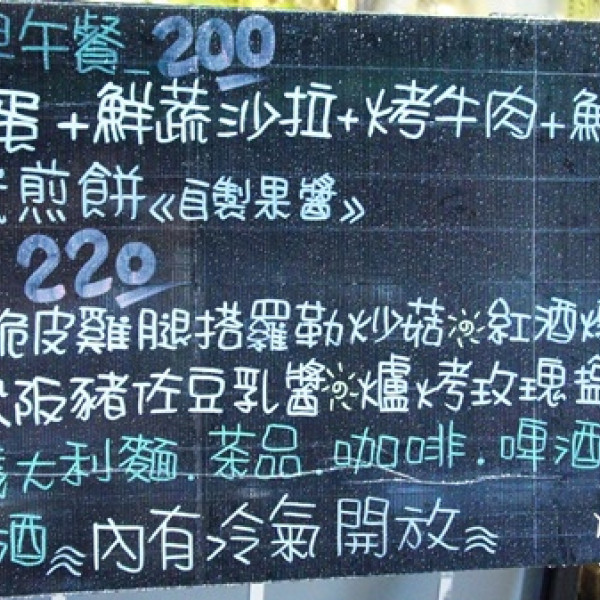 早午餐_200
蛋+鮮蔬沙拉+烤牛肉+鮮
煎餅《自製果醬》
220
脆皮雞腿搭羅勒炒菇☼紅酒
阪豬佐豆乳醬☼爐烤玫瑰鹽
義大利麵.茶品.咖啡.啤酒
酒 內有冷氣開放